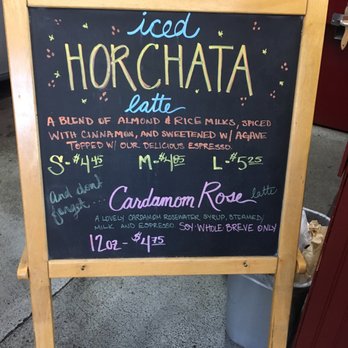 iced
HORCHATA
latte
A BLEND OF ALMOND & RICE MILKS, SPICED
WITH CINNAMON, AND SWEETENED W/ AGAVE
TOPPED W/ OUR DELICIOUS ESPRESSO.
S-$4.45 M-$4.85 L-$5.25
and don't
forget...
Cardamom Rose latte
A LOVELY CARDAMOM ROSEWATER SYRUP, STEAMED
MILK AND ESPRESSO SOY WHOLE BREVE ONLY
12oz-$4.75